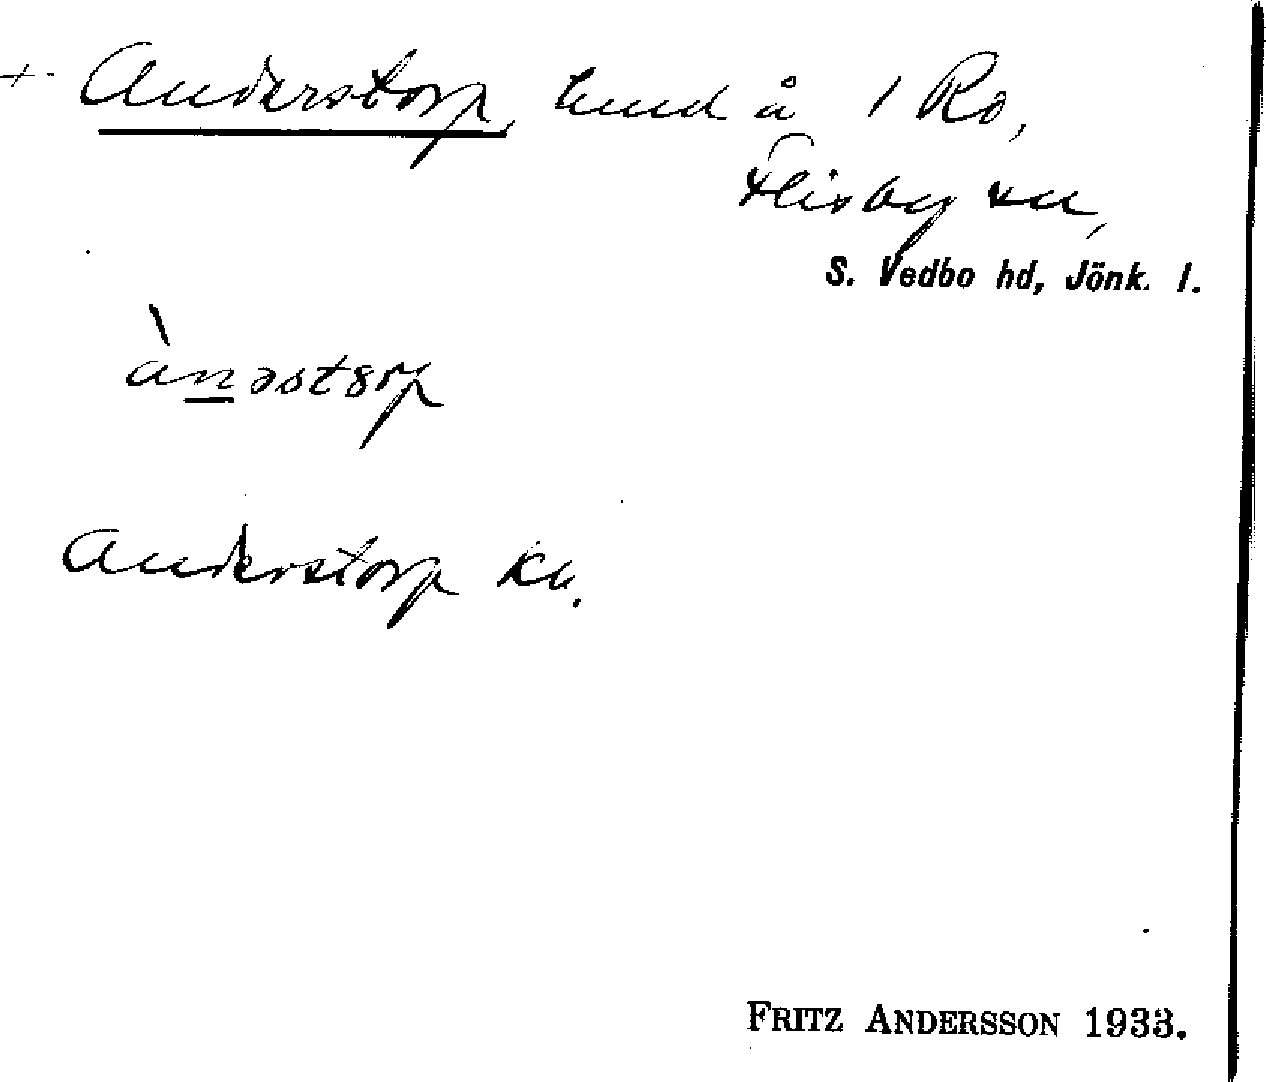 + Anderstorp, lund å 1 Ro,
Flisby sn,
S. Vedbo hd, Jönk. l.
ànəstɔrp
Anderstorp Ka.
FRITZ ANDERSSON 1933.